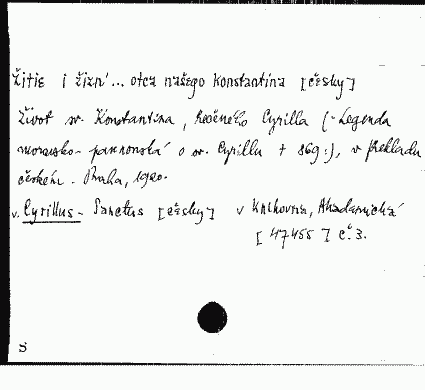 Žitie i žizn'... otca našego Konstantina [česky]
Život sv. Konstantina, řečeného Cyrilla (: Legenda
moravsko-pannonská o sv. Cyrillu + 869:), v překladu
českém. Praha, 1920.
v. Cyrillus - Sanctus [česky] v Knihovna, Akademická
[47455] č. 3.
S